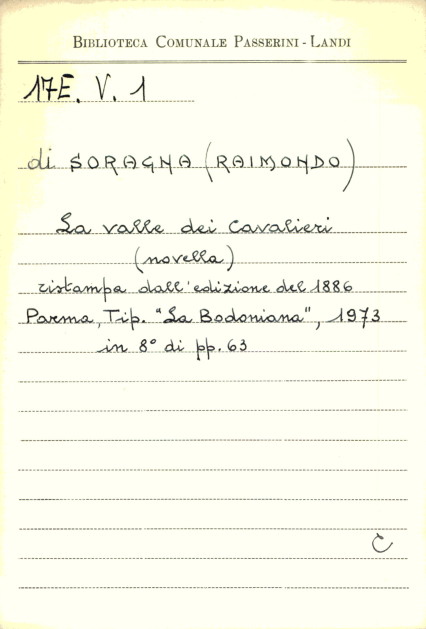 BIBLIOTECA COMUNALE PASSERINI - LANDI
17E. V. 1
di SORAGNA (RAIMONDO)
La valle dei Cavalieri
(novella)
ristampa dall'edizione del 1886
Parma, Tip. "La Bodoniana", 1973
in 8° di pp. 63
C